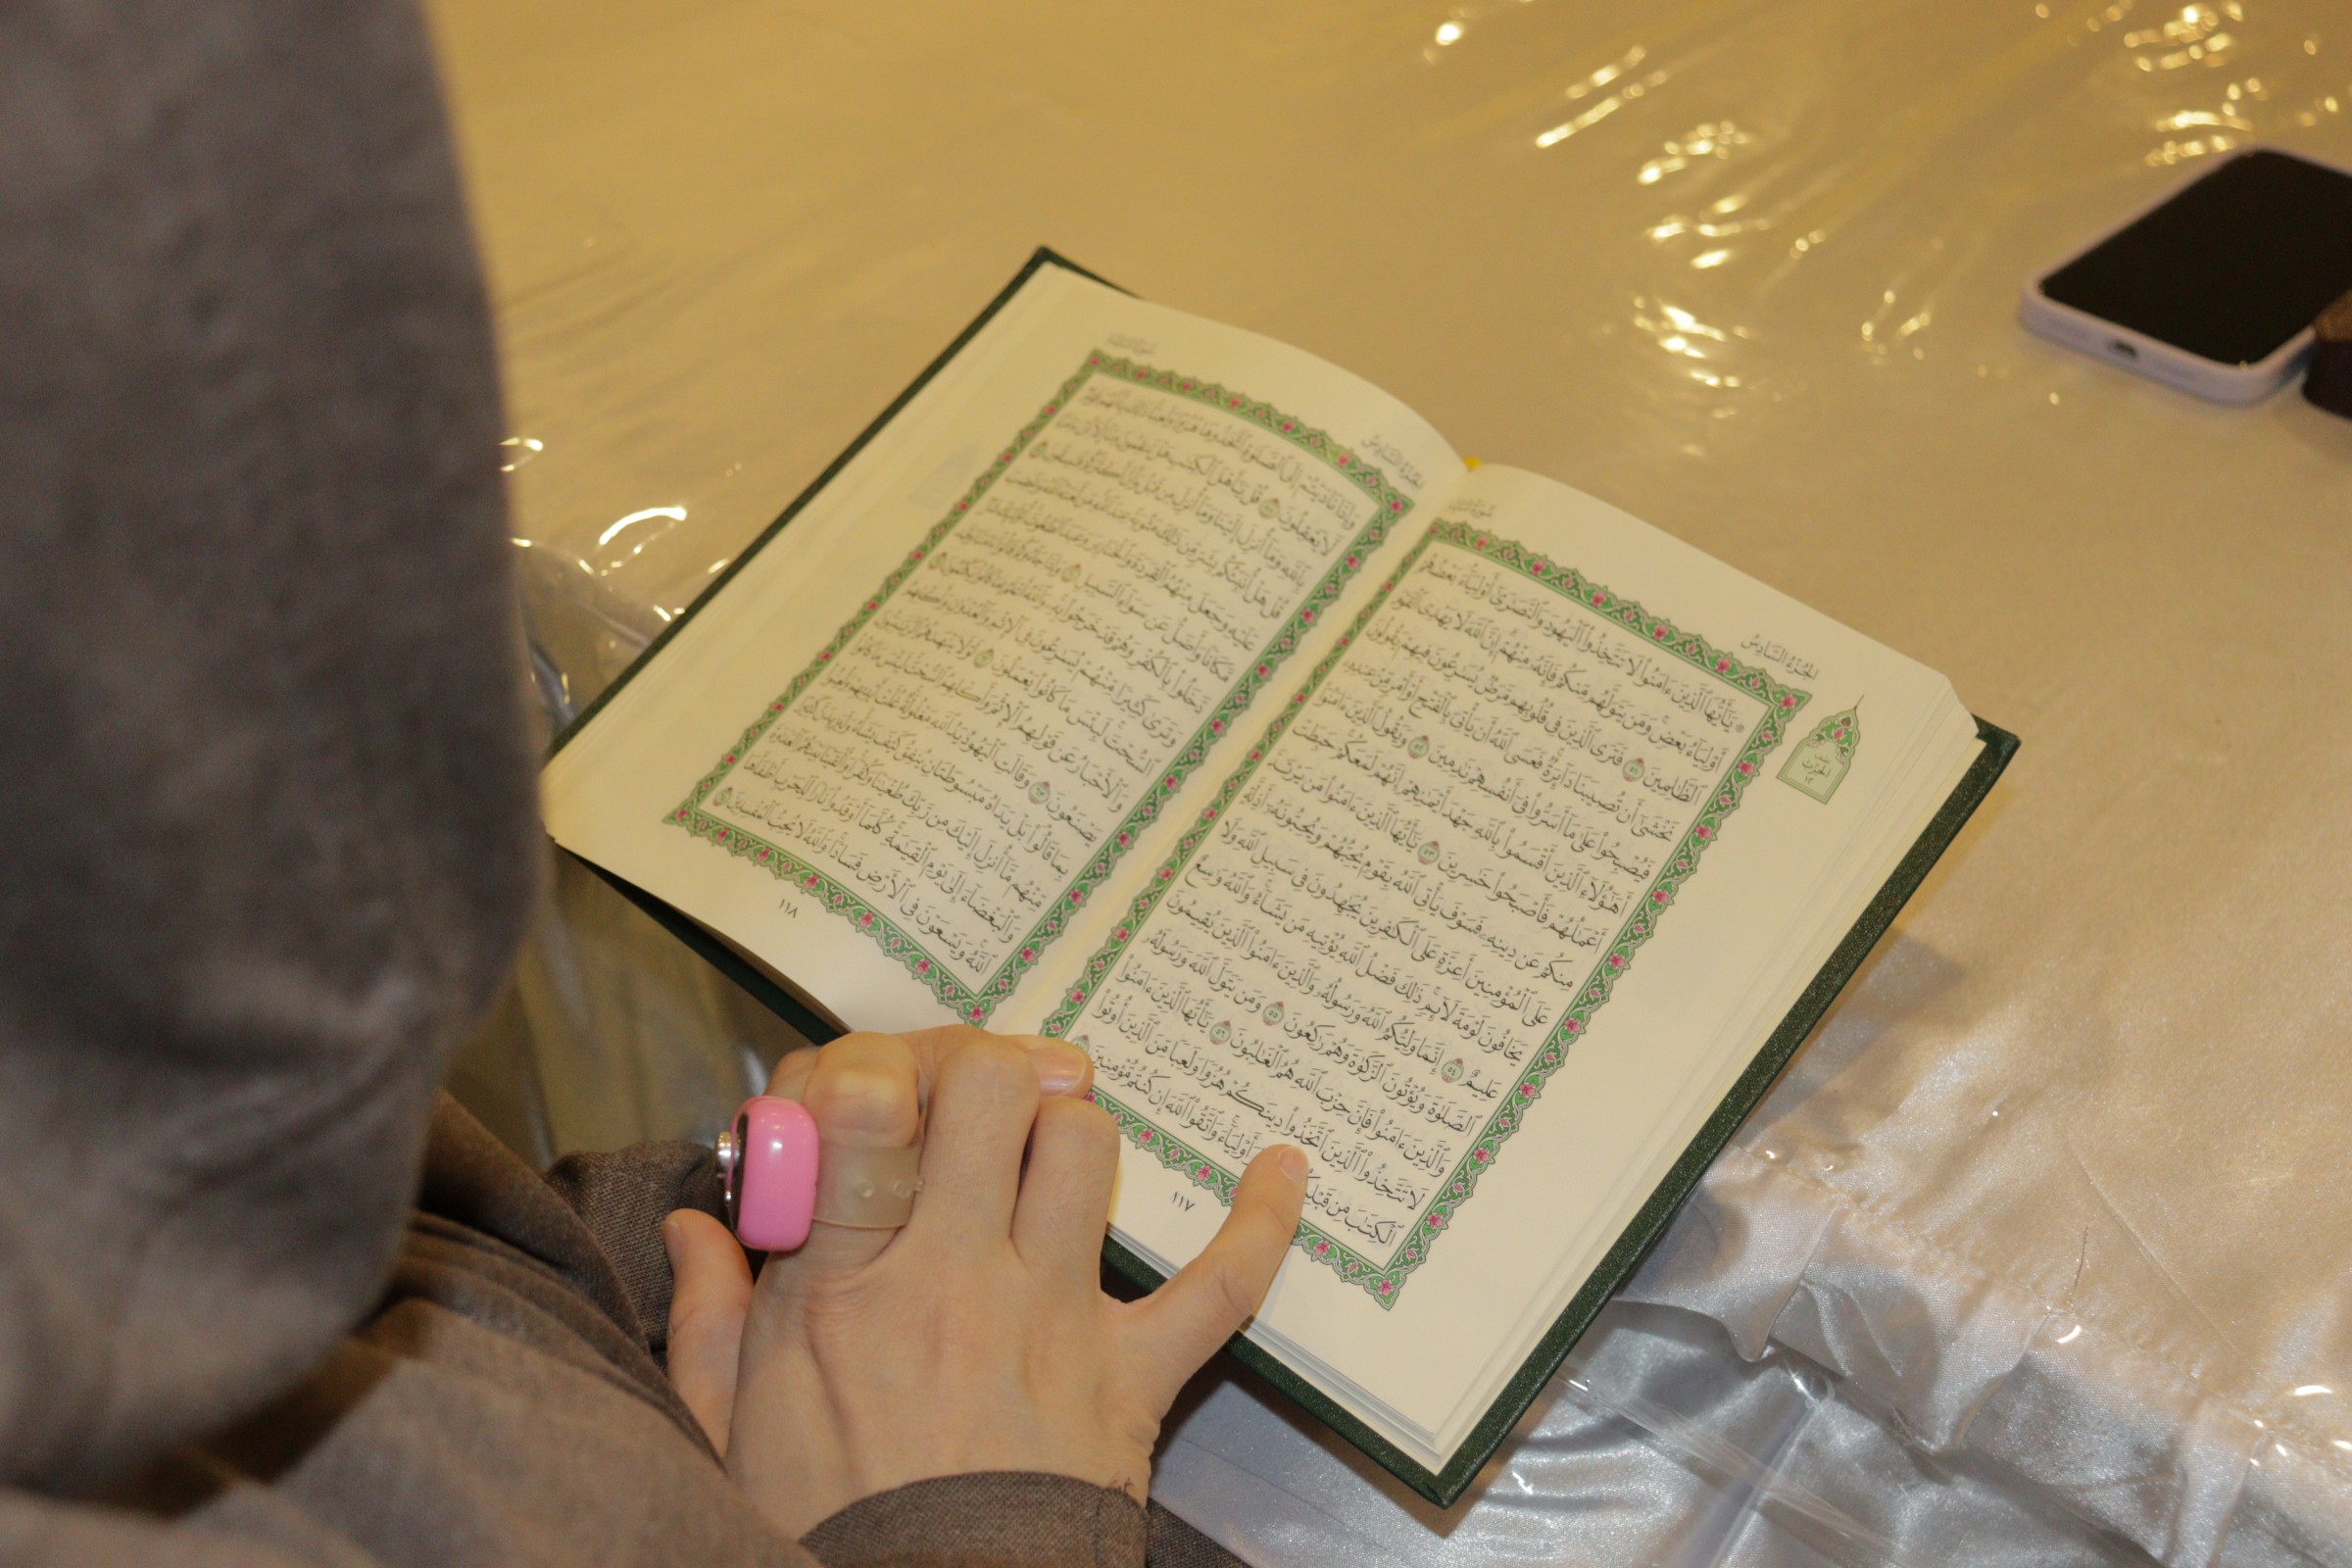 الجُزْءُ السَّادِسُ
۞ يَٰٓأَيُّهَا ٱلَّذِينَ ءَامَنُوا۟ لَا تَتَّخِذُوا۟ ٱلْيَهُودَ وَٱلنَّصَٰرَىٰٓ أَوْلِيَآءَ بَعْضُهُمْ
أَوْلِيَآءُ بَعْضٍ وَمَن يَتَوَلَّهُم مِّنكُمْ فَإِنَّهُۥ مِنْهُمْ إِنَّ ٱللَّهَ لَا يَهْدِى ٱلْقَوْمَ
ٱلظَّٰلِمِينَ ٥١ فَتَرَى ٱلَّذِينَ فِى قُلُوبِهِم مَّرَضٌ يُسَٰرِعُونَ فِيهِمْ يَقُولُونَ
نَخْشَىٰٓ أَن تُصِيبَنَا دَآئِرَةٌ فَعَسَى ٱللَّهُ أَن يَأْتِىَ بِٱلْفَتْحِ أَوْ أَمْرٍ مِّنْ عِندِهِۦ
فَيُصْبِحُوا۟ عَلَىٰ مَآ أَسَرُّوا۟ فِىٓ أَنفُسِهِمْ نَٰدِمِينَ ٥٢ وَيَقُولُ ٱلَّذِينَ ءَامَنُوٓا۟
أَهَٰٓؤُلَآءِ ٱلَّذِينَ أَقْسَمُوا۟ بِٱللَّهِ جَهْدَ أَيْمَٰنِهِمْ إِنَّهُمْ لَمَعَكُمْ حَبِطَتْ
أَعْمَٰلُهُمْ فَأَصْبَحُوا۟ خَٰسِرِينَ ٥٣ يَٰٓأَيُّهَا ٱلَّذِينَ ءَامَنُوا۟ مَن يَرْتَدَّ
مِنكُمْ عَن دِينِهِۦ فَسَوْفَ يَأْتِى ٱللَّهُ بِقَوْمٍ يُحِبُّهُمْ وَيُحِبُّونَهُۥٓ أَذِلَّةٍ
عَلَى ٱلْمُؤْمِنِينَ أَعِزَّةٍ عَلَى ٱلْكَٰفِرِينَ يُجَٰهِدُونَ فِى سَبِيلِ ٱللَّهِ وَلَا
يَخَافُونَ لَوْمَةَ لَآئِمٍ ذَٰلِكَ فَضْلُ ٱللَّهِ يُؤْتِيهِ مَن يَشَآءُ وَٱللَّهُ وَٰسِعٌ
عَلِيمٌ ٥٤ إِنَّمَا وَلِيُّكُمُ ٱللَّهُ وَرَسُولُهُۥ وَٱلَّذِينَ ءَامَنُوا۟ ٱلَّذِينَ يُقِيمُونَ
ٱلصَّلَوٰةَ وَيُؤْتُونَ ٱلزَّكَوٰةَ وَهُمْ رَٰكِعُونَ ٥٥ وَمَن يَتَوَلَّ ٱللَّهَ وَرَسُولَهُۥ
وَٱلَّذِينَ ءَامَنُوا۟ فَإِنَّ حِزْبَ ٱللَّهِ هُمُ ٱلْغَٰلِبُونَ ٥٦ يَٰٓأَيُّهَا ٱلَّذِينَ ءَامَنُوا۟
لَا تَتَّخِذُوا۟ ٱلَّذِينَ ٱتَّخَذُوا۟ دِينَكُمْ هُزُوًا وَلَعِبًا مِّنَ ٱلَّذِينَ أُوتُوا۟
ٱلْكِتَٰبَ مِن أَوْلِيَآءَ وَٱتَّقُوا۟ ٱللَّهَ إِن كُنتُم مُّؤْمِنِينَ
١١٧
الحزب
١٢
الجُزْءُ السَّادِسُ
وَإِذَا نَادَيْتُمْ إِلَى ٱلصَّلَوٰةِ ٱتَّخَذُوهَا هُزُوًا وَلَعِبًا ذَٰلِكَ بِأَنَّهُمْ قَوْمٌ
لَّا يَعْقِلُونَ ٥٨ قُلْ يَٰٓأَهْلَ ٱلْكِتَٰبِ هَلْ تَنقِمُونَ مِنَّآ إِلَّآ أَنْ ءَامَنَّا
بِٱللَّهِ وَمَآ أُنزِلَ إِلَيْنَا وَمَآ أُنزِلَ مِن قَبْلُ وَأَنَّ أَكْثَرَكُمْ فَٰسِقُونَ ٥٩
قُلْ هَلْ أُنَبِّئُكُم بِشَرٍّ مِّن ذَٰلِكَ مَثُوبَةً عِندَ ٱللَّهِ مَن لَّعَنَهُ ٱللَّهُ وَغَضِبَ
عَلَيْهِ وَجَعَلَ مِنْهُمُ ٱلْقِرَدَةَ وَٱلْخَنَازِيرَ وَعَبَدَ ٱلطَّٰغُوتَ أُو۟لَٰٓئِكَ شَرٌّ
مَّكَانًا وَأَضَلُّ عَن سَوَآءِ ٱلسَّبِيلِ ٦٠ وَإِذَا جَآءُوكُمْ قَالُوٓا۟ ءَامَنَّا وَقَد
دَّخَلُوا۟ بِٱلْكُفْرِ وَهُمْ قَدْ خَرَجُوا۟ بِهِۦ وَٱللَّهُ أَعْلَمُ بِمَا كَانُوا۟ يَكْتُمُونَ ٦١
وَتَرَىٰ كَثِيرًا مِّنْهُمْ يُسَٰرِعُونَ فِى ٱلْإِثْمِ وَٱلْعُدْوَٰنِ وَأَكْلِهِمُ
ٱلسُّحْتَ لَبِئْسَ مَا كَانُوا۟ يَعْمَلُونَ ٦٢ لَوْلَا يَنْهَىٰهُمُ ٱلرَّبَّٰنِيُّونَ
وَٱلْأَحْبَارُ عَن قَوْلِهِمُ ٱلْإِثْمَ وَأَكْلِهِمُ ٱلسُّحْتَ لَبِئْسَ مَا كَانُوا۟
يَصْنَعُونَ ٦٣ وَقَالَتِ ٱلْيَهُودُ يَدُ ٱللَّهِ مَغْلُولَةٌ غُلَّتْ أَيْدِيهِمْ وَلُعِنُوا۟
بِمَا قَالُوا۟ بَلْ يَدَاهُ مَبْسُوطَتَانِ يُنفِقُ كَيْفَ يَشَآءُ وَلَيَزِيدَنَّ كَثِيرًا
مِّنْهُم مَّآ أُنزِلَ إِلَيْكَ مِن رَّبِّكَ طُغْيَٰنًا وَكُفْرًا وَأَلْقَيْنَا بَيْنَهُمُ ٱلْعَدَٰوَةَ
وَٱلْبَغْضَآءَ إِلَىٰ يَوْمِ ٱلْقِيَٰمَةِ كُلَّمَآ أَوْقَدُوا۟ نَارًا لِّلْحَرْبِ أَطْفَأَهَا
ٱللَّهُ وَيَسْعَوْنَ فِى ٱلْأَرْضِ فَسَادًا وَٱللَّهُ لَا يُحِبُّ ٱلْمُفْسِدِينَ ٦٤
١١٨